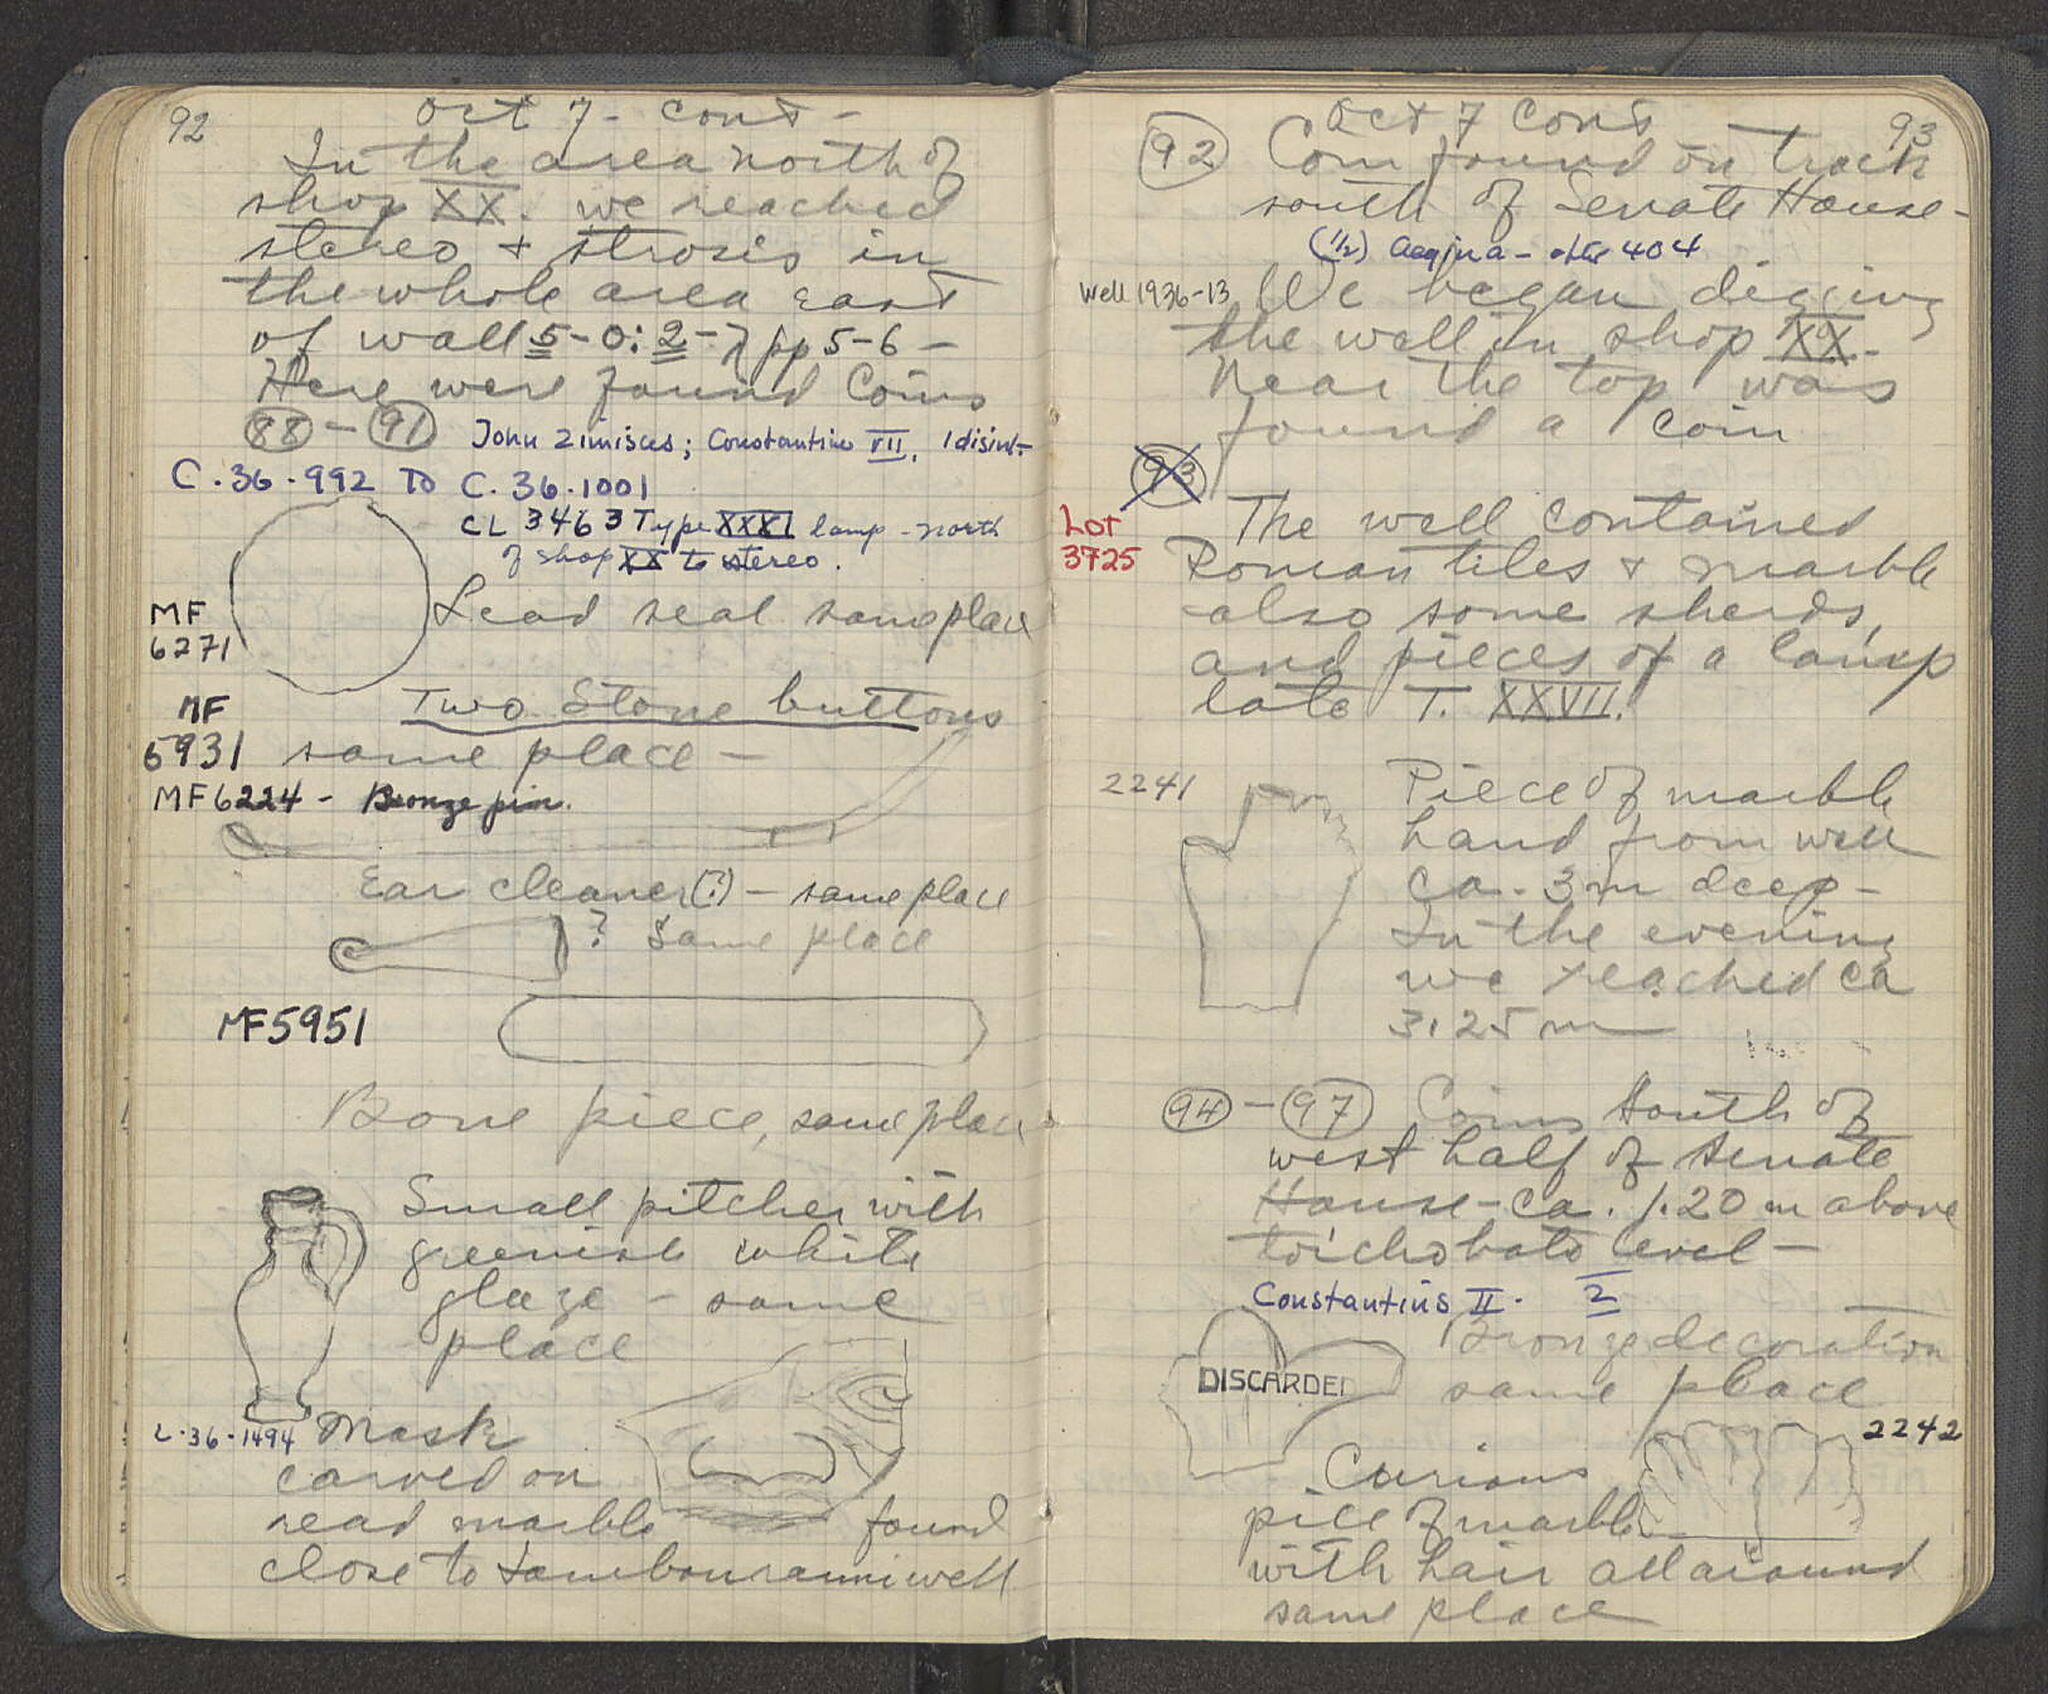 92
Oct 7 - cont -
In the area north of
shop XX. we reached
stereo + strosis in
the whole area east
of wall 5-0:2-7 pp 5-6 -
Here were found Coins
88 - 91 John Zimisces; Constantine VII, 1 disint-
C.36.992 TO C.36.1001
CL 3463 Type XXXI lamp - north
of shop XX to stereo.
MF
6271
Lead seal same place
MF
5931
Two Stone buttons
same place -
MF6224 - Bronze pin.
Ear cleaner(?) - same place
? Same place
MF5951
Bone piece, same place
Small pitcher with
greenish white
glaze - same
place
L-36-1494 Mask
carved on
read marble found
close to tambouranni well
Oct 7 Cont
93
92 Coin found on track
south of Senate House -
(1/2) Aegina - after 404
Well 1936-13 We began digging
the well in shop XX -
Near the top was
found a coin
93
Lot
3725
The well contained
Roman tiles + marble
also some sherds,
and pieces of a lamp
late T. XXVII.
2241 Piece of marble
hand from well
ca. 3m deep -
In the evening
we reached ca
3.25 m
94 - 97 Coins South of
west half of Senate
House - ca. 1.20 m above
toichobate level -
Constantius II. 2
Bronze decoration
DISCARDED
same place
2242
Curious
piece of marble
with hair all around
same place